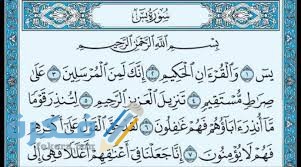 سُورَةُ يسٓ
بِسْمِ اللَّهِ الرَّحْمَٰنِ الرَّحِيمِ
يسٓ ١ وَالْقُرْءَانِ الْحَكِيمِ ٢ إِنَّكَ لَمِنَ الْمُرْسَلِينَ ٣ عَلَىٰ
صِرَٰطٍ مُّسْتَقِيمٍ ٤ تَنزِيلَ الْعَزِيزِ الرَّحِيمِ ٥ لِتُنذِرَ قَوْمًا
مَّآ أُنذِرَ ءَابَآؤُهُمْ فَهُمْ غَٰفِلُونَ ٦ لَقَدْ حَقَّ الْقَوْلُ عَلَىٰٓ أَكْثَرِهِمْ
فَهُمْ لَا يُؤْمِنُونَ ٧ إِنَّا جَعَلْنَا فِىٓ أَعْنَٰقِهِمْ أَغْلَٰلًا فَهِىَ إِلَى